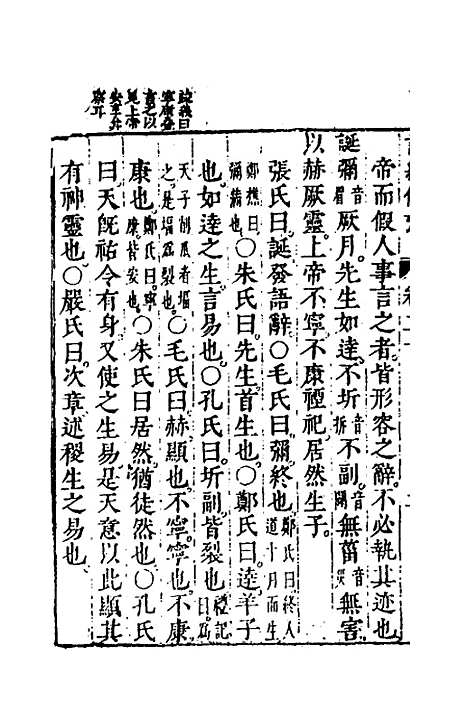 疏義曰
寧康分
言之以
見上帝
安享此
祭耳
帝而假人事言之者皆形容之辭不必執其迹也
誕彌音眉厥月先生如達不坼音拆不副音闢無菑音災無害
以赫厥靈上帝不寧不康禋祀居然生子
張氏曰誕發語辭○毛氏曰彌終也鄭氏曰終人道十月而生
鄭樵曰彌猶也○朱氏曰先生首生也○鄭氏曰達羊子
也如達之生言易也○孔氏曰坼副皆裂也禮記曰爲
天子削瓜者堛之是堛爲裂也○毛氏曰赫顯也不寧寧也不康
康也鄭氏曰寧康皆安也○朱氏曰居然猶徒然也○孔氏
曰天旣祐令有身又使之生易是天意以此顯其
有神靈也○嚴氏曰次章述稷生之易也